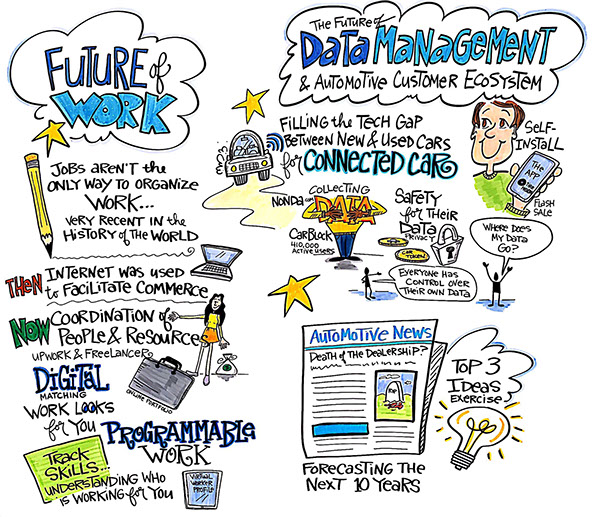 FUTURE of
WORK
JOBS AREN'T the
ONLY WAY to ORGANIZE
WORK...
VERY RECENT IN the
HISTORY of the WORLD
THEN INTERNET WAS USED
to FACILITATE COMMERCE
NOW COORDINATION of
PEOPLE & RESOURCE
UPWORK & FREELANCER
DIGITAL
MATCHING
WORK LOOKS
for YOU
ONLINE PORTFOLIO
PROGRAMMABLE
WORK
TRACK
SKILLS...
UNDERSTANDING WHO
IS WORKING for YOU
VIRTUAL
WORKER
PROFILE
THE FUTURE of
DATA MANAGEMENT
& AUTOMOTIVE CUSTOMER ECOSYSTEM
FILLING THE TECH GAP
BETWEEN NEW & USED CARS
for CONNECTED CAR
SELF-
INSTALL
THE
APP
FLASH
SALE
COLLECTING
NONDA.COM
DATA
CARBLOCK
410,000
ACTIVE USERS
SAFETY
for THEIR
DATA
PRIVACY
CAR
TOKEN
WHERE DOES
MY DATA
GO?
EVERYONE HAS
CONTROL OVER
THEIR OWN DATA
AUTOMOTIVE NEWS
DEATH OF THE DEALERSHIP?
RIP
FORECASTING THE
NEXT 10 YEARS
TOP 3
IDEAS
EXERCISE